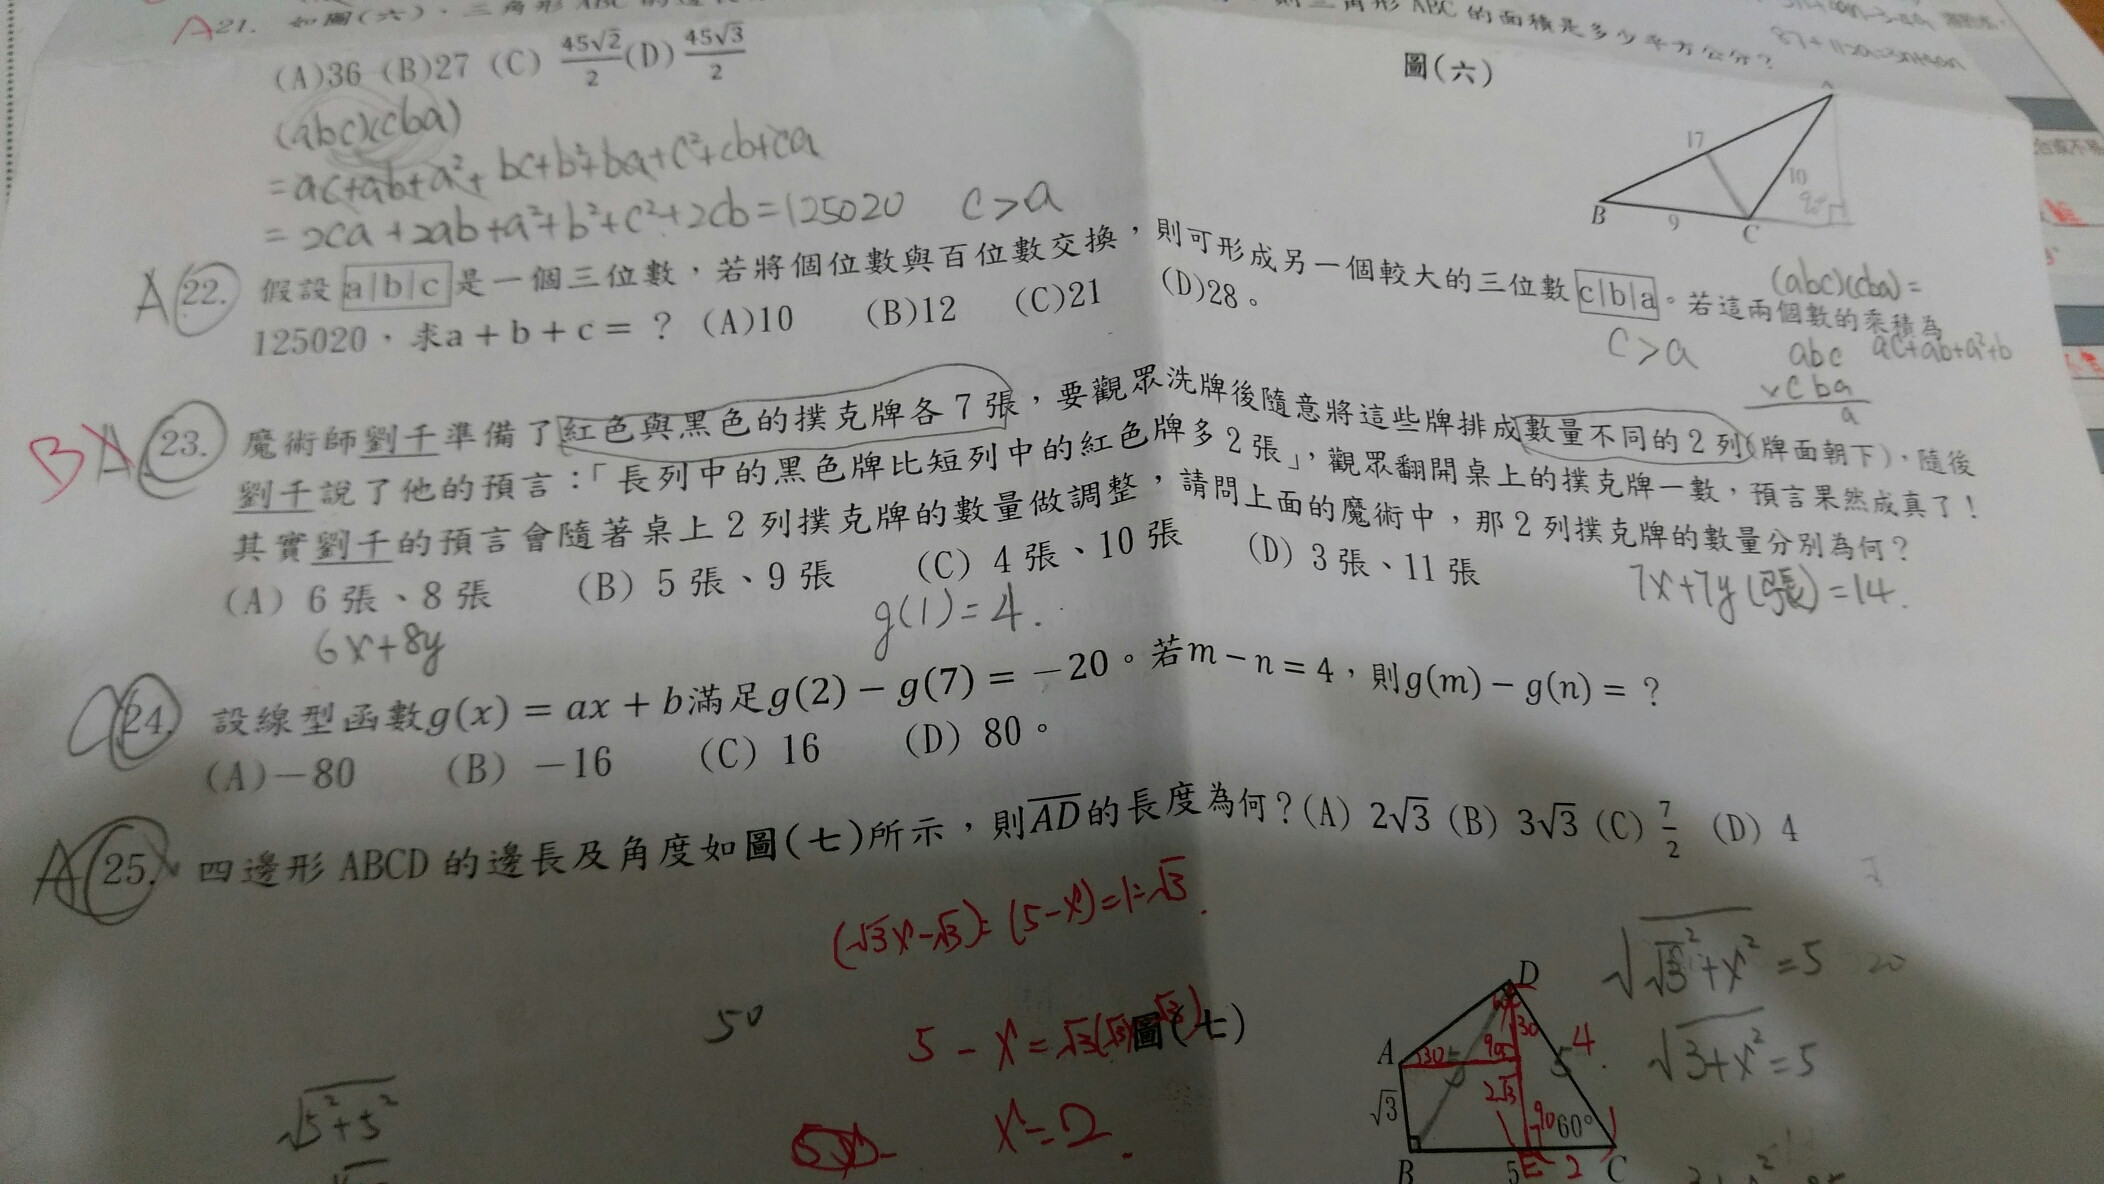 A21. 如圖(六)，三角形 ABC 的邊長
則三角形 ABC 的面積是多少平方公分？
(A)36 (B)27 (C) 45√2/2 (D) 45√3/2
87+
圖(六)
A
17
10
B
9
C
(abc)(cba)
=ac+ab+a²+bc+b²+ba+c²+cb+ca
=2ca+2ab+a²+b²+c²+2cb=125020 c>a
A 22. 假設 a|b|c 是一個三位數，若將個位數與百位數交換，則可形成另一個較大的三位數 c|b|a 。若這兩個數的乘積為
125020，求a＋b＋c＝？(A)10 (B)12 (C)21 (D)28。
(abc)(cba)=
c>a
abc ac+ab+a²+b
×cba
a
BA 23. 魔術師劉千準備了紅色與黑色的撲克牌各 7 張，要觀眾洗牌後隨意將這些牌排成數量不同的 2 列(牌面朝下)，隨後
劉千說了他的預言：「長列中的黑色牌比短列中的紅色牌多 2 張」，觀眾翻開桌上的撲克牌一數，預言果然成真了！
其實劉千的預言會隨著桌上 2 列撲克牌的數量做調整，請問上面的魔術中，那 2 列撲克牌的數量分別為何？
(A) 6 張、8 張 (B) 5 張、9 張 (C) 4 張、10 張 (D) 3 張、11 張
7x+7y(張)=14.
6x+8y
g(1)=4.
C 24. 設線型函數g(x) = ax + b滿足g(2) − g(7) = −20。若m − n = 4，則g(m) − g(n) = ？
(A)−80 (B) −16 (C) 16 (D) 80。
A 25. 四邊形 ABCD 的邊長及角度如圖(七)所示，則AD的長度為何？(A) 2√3 (B) 3√3 (C) 7/2 (D) 4
(√3x-√3):(5-x)=1:√3.
√(√3²+x²)=5 20
50
圖(七)
√(3+x²)=5
x=2.
√(5²+5²)
D
60
30
A
30
90
5
5
4
√3
2√3
90
60°
B
5
E
2
C